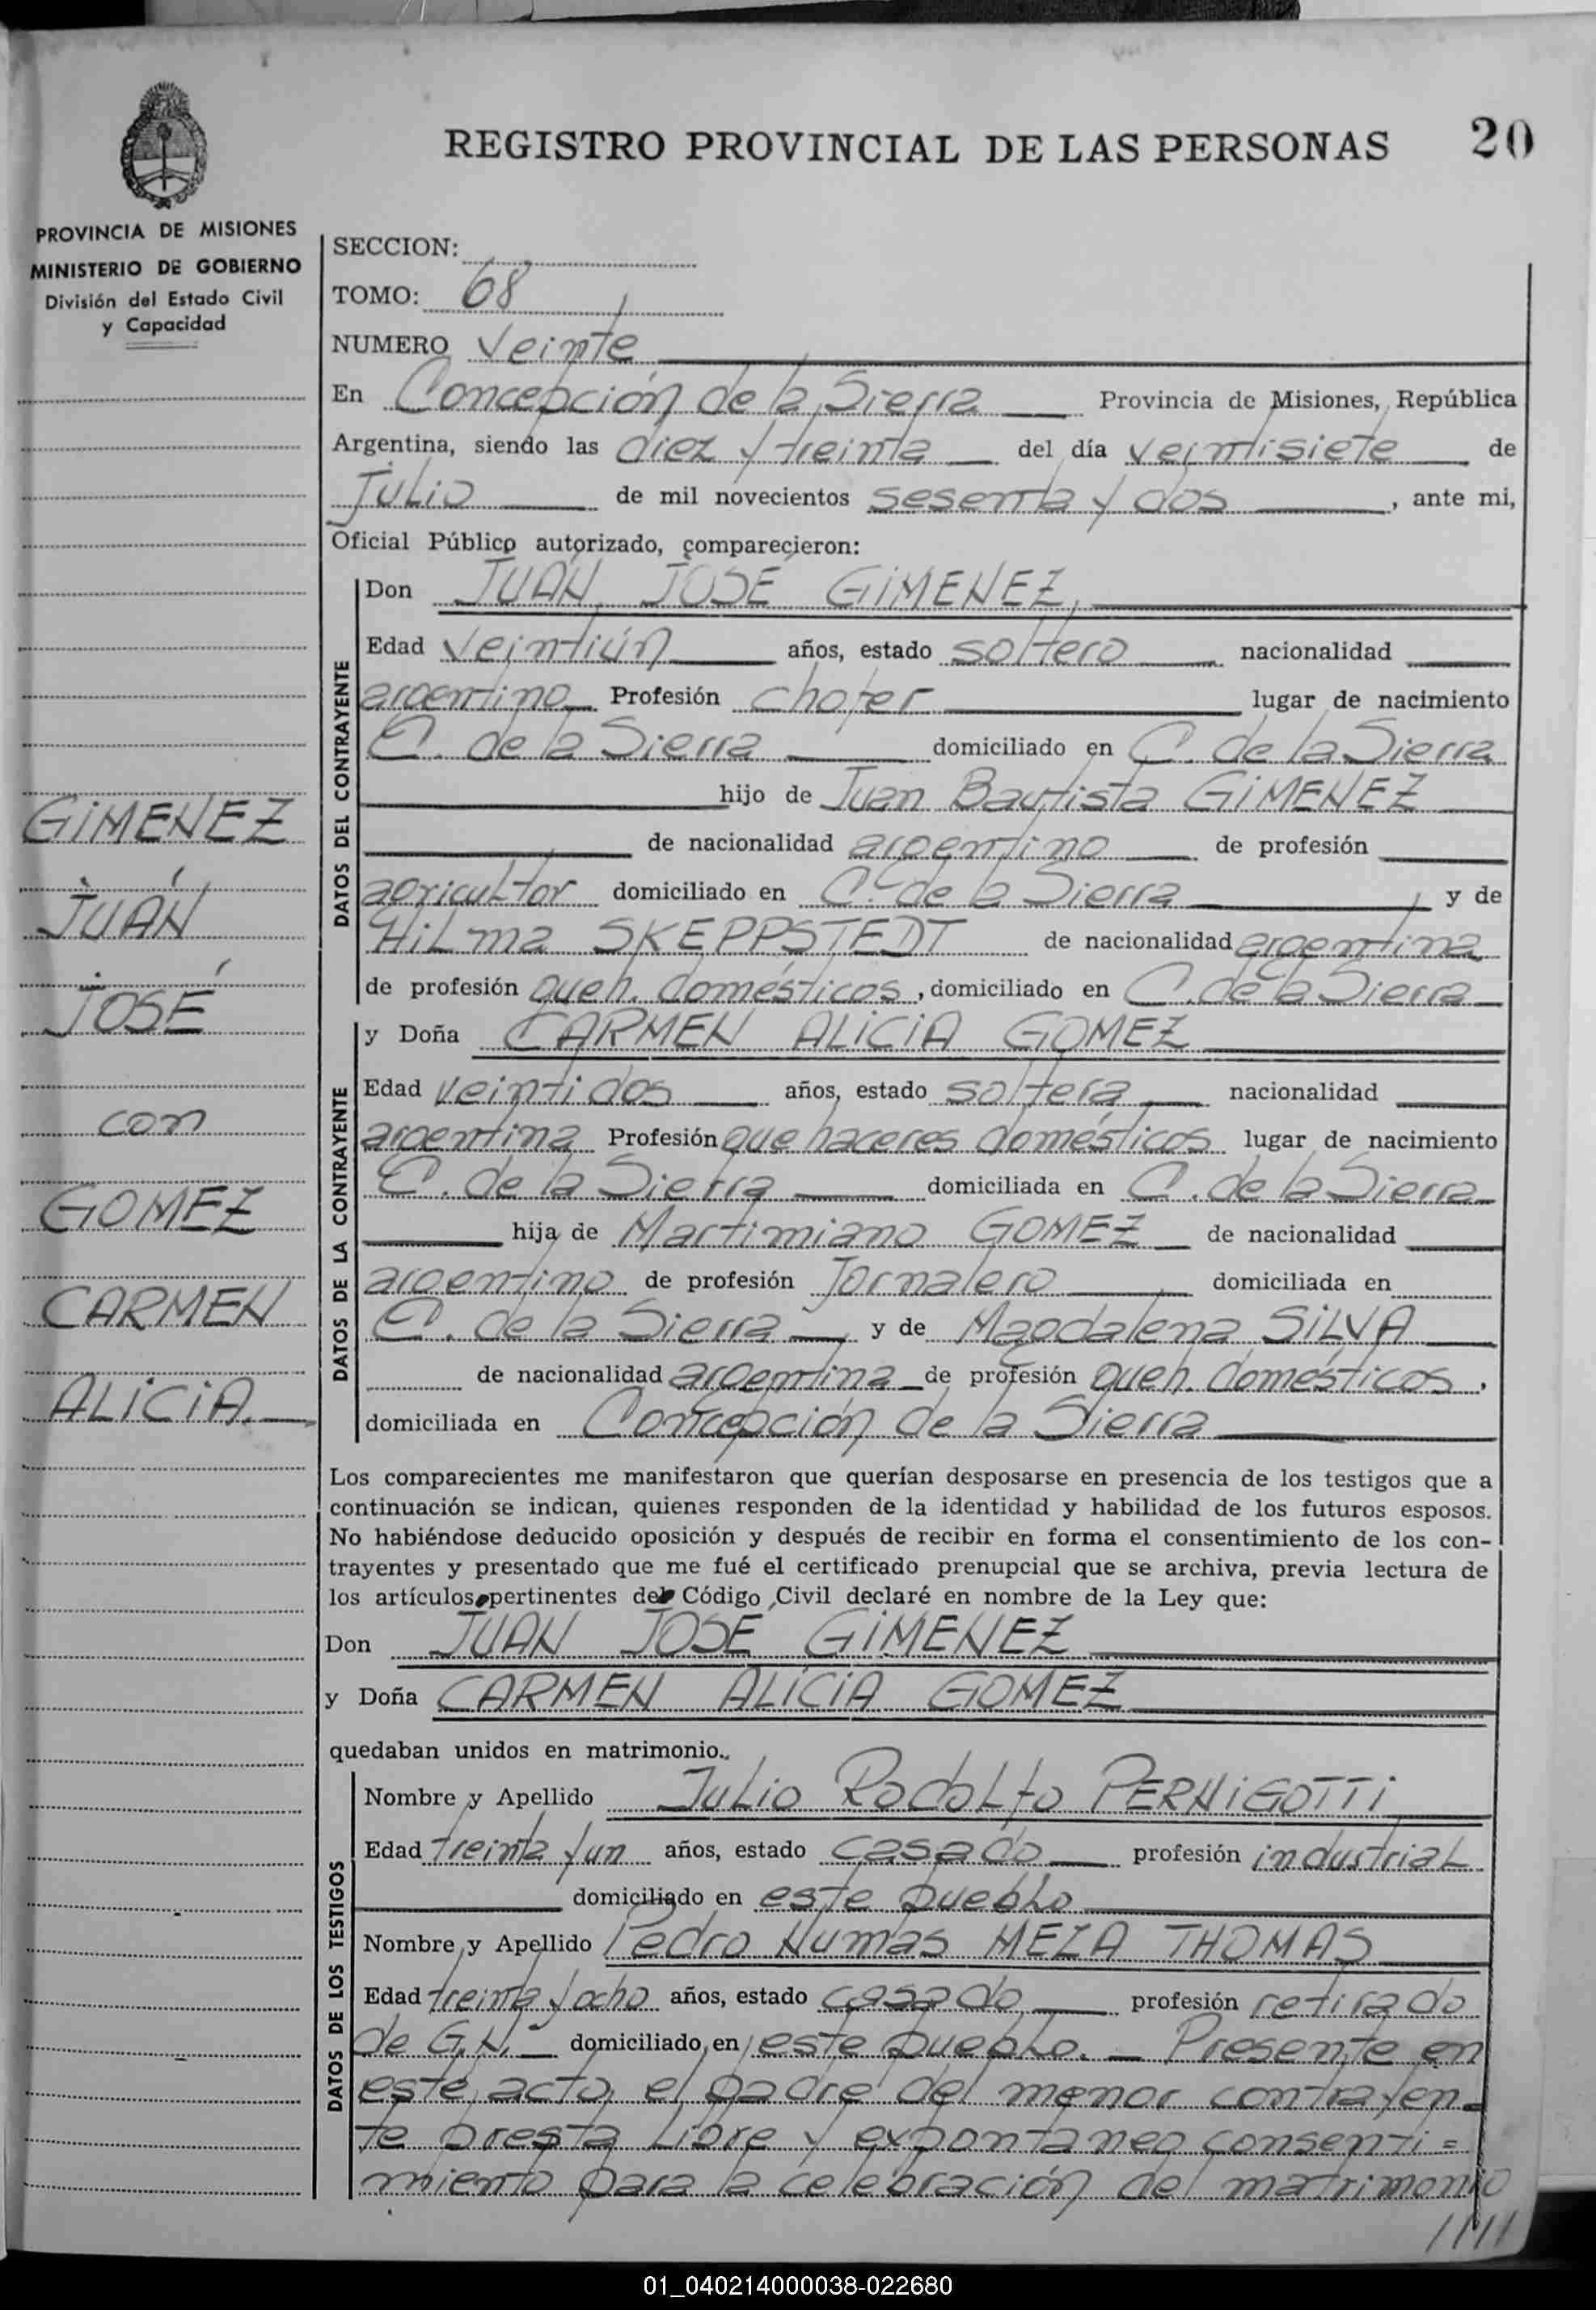 REGISTRO PROVINCIAL DE LAS PERSONAS 20
PROVINCIA DE MISIONES
MINISTERIO DE GOBIERNO
División del Estado Civil
y Capacidad
GIMENEZ
JUAN
JOSÉ
con
GOMEZ
CARMEN
ALICIA.
SECCION:
TOMO: 68
NUMERO Veinte
En Concepción de la Sierra Provincia de Misiones, República
Argentina, siendo las diez y treinta del día veintisiete de
Julio de mil novecientos sesenta y dos, ante mi,
Oficial Público autorizado, comparecieron:
DATOS DEL CONTRAYENTE
Don JUAN JOSÉ GIMENEZ,
Edad veintiún años, estado soltero nacionalidad
argentino Profesión chofer lugar de nacimiento
C. de la Sierra domiciliado en C. de la Sierra
hijo de Juan Bautista GIMENEZ
de nacionalidad argentino de profesión
agricultor domiciliado en C. de la Sierra y de
Hilma SKEPPSTEDT de nacionalidad argentina
de profesión queh. domésticos, domiciliado en C. de la Sierra
DATOS DE LA CONTRAYENTE
y Doña CARMEN ALICIA GOMEZ
Edad veintidos años, estado soltera nacionalidad
argentina Profesión quehaceres domésticos lugar de nacimiento
C. de la Sierra domiciliada en C. de la Sierra
hija de Martimiano GOMEZ de nacionalidad
argentino de profesión Jornalero domiciliada en
C. de la Sierra y de Magdalena SILVA
de nacionalidad argentina de profesión queh. domésticos.
domiciliada en Concepción de la Sierra
Los comparecientes me manifestaron que querían desposarse en presencia de los testigos que a
continuación se indican, quienes responden de la identidad y habilidad de los futuros esposos.
No habiéndose deducido oposición y después de recibir en forma el consentimiento de los con-
trayentes y presentado que me fué el certificado prenupcial que se archiva, previa lectura de
los artículos pertinentes del Código Civil declaré en nombre de la Ley que:
Don JUAN JOSE GIMENEZ
y Doña CARMEN ALICIA GOMEZ
quedaban unidos en matrimonio.
DATOS DE LOS TESTIGOS
Nombre y Apellido Julio Rodolfo PERNIGOTTI
Edad treinta y un años, estado casado profesión industrial
domiciliado en este pueblo
Nombre y Apellido Pedro Numas MEZA THOMAS
Edad treinta y ocho años, estado casado profesión retirado
de G.N. domiciliado en este pueblo. — Presente en
este acto el padre del menor contrayen-
te presta libre y expontaneo consenti=
miento para la celebración del matrimonio
/////
01_040214000038-022680